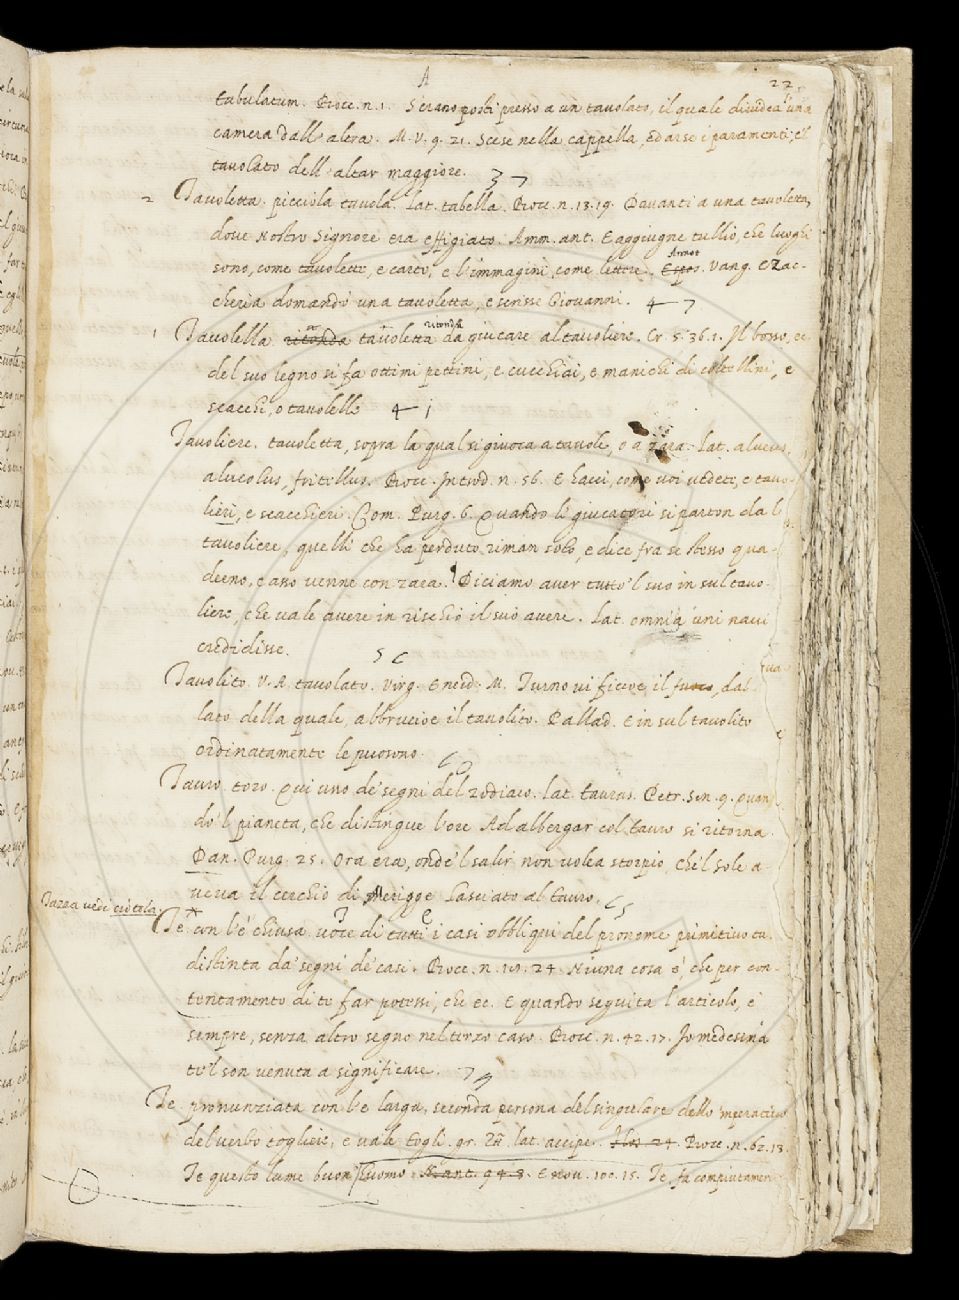 A
22
tabulatum. Bocc. n. 1. S'erano posti presso a un tavolato, il quale dividea una
camera dall'altra. M. V. 9. 21. Scese nella cappella, ed arse i paramenti, e'l
tavolato dell'altar maggiore. 3 7
2 Tavoletta. picciola tavola. Lat. tabella. Bocc. n. 13. 19. Davanti a una tavoletta,
dove nostro Signore era effigiato. Amm. ant. E aggiugne tullio, che luoghi
sono, come tavolette, e carte, e l'immagini, come lettere. Espos. Annot. Vang. E Zac-
cheria domandò una tavoletta, e scrisse Giovanni. 4 7
1 Tavolella ritonda tavoletta ritonda da giucare al tavoliere. Cr. 5. 36. 1. Il bosso, ec.
del suo legno si fa ottimi pettini, e cucchiai, e manichi di coltellini, e
scacchi, o tavolelle 4 1
Tavoliere. tavoletta, sopra la qual si giuoca a tavole, o a zara. Lat. alveus,
alveolus, fritillus. Bocc. Introd. n. 56. E hacci, come voi vedete, e tavo-
lieri, e scacchieri. Com. Purg. 6. Quando li giucatori si parton dal
tavoliere, quelli che ha perduto riman solo, e dice fra se stesso qua-
derno, e asso venne con zara. Diciamo aver tutto 'l suo in sul tavo-
liere, che vale avere in rischio il suo avere. Lat. omnia uni navi
credidisse. 5 6
Tavolito. V. A. tavolato. Virg. Eneid. M. Turno vi ficcoe il fuoco, dal-
lato della quale, abbrucioe il tavolito. Pallad. E in sul tavolito
ordinatamente le puosono.
Tauro. toro. Qui uno de' segni del zodiaco. Lat. taurus. Petr. Son. 9. Quan-
do 'l pianeta, che distingue l'ore Ad albergar col tauro si ritorna.
Dan. Purg. 25. Ora era, onde 'l salir non volea storpio, che 'l sole a-
veva il cerchio di Merigge Lasciato al tauro.
Tazza vedi ciotola
Te con l'é chiusa voce di tutti i casi obbliqui del pronome primitivo tu.
distinta da' segni de' casi. Bocc. n. 24. Niuna cosa è, che per con-
tentamento di te far potessi, che ec. E quando seguita l'articolo, è
sempre, senza altro segno nel terzo caso. Bocc. n. 42. 17. Io medesima
te 'l son venuta a significare.
Te pronunziata con l'e larga, seconda persona del singulare dello 'mperativo
del verbo togliere, e vale togli. gr. τῆ. lat. accipe. Bocc. n. 62. 13.
Te questo lume buon' huomo. N. ant. 94. 3. E nov. 100. 15. Te, fa compiutamen-